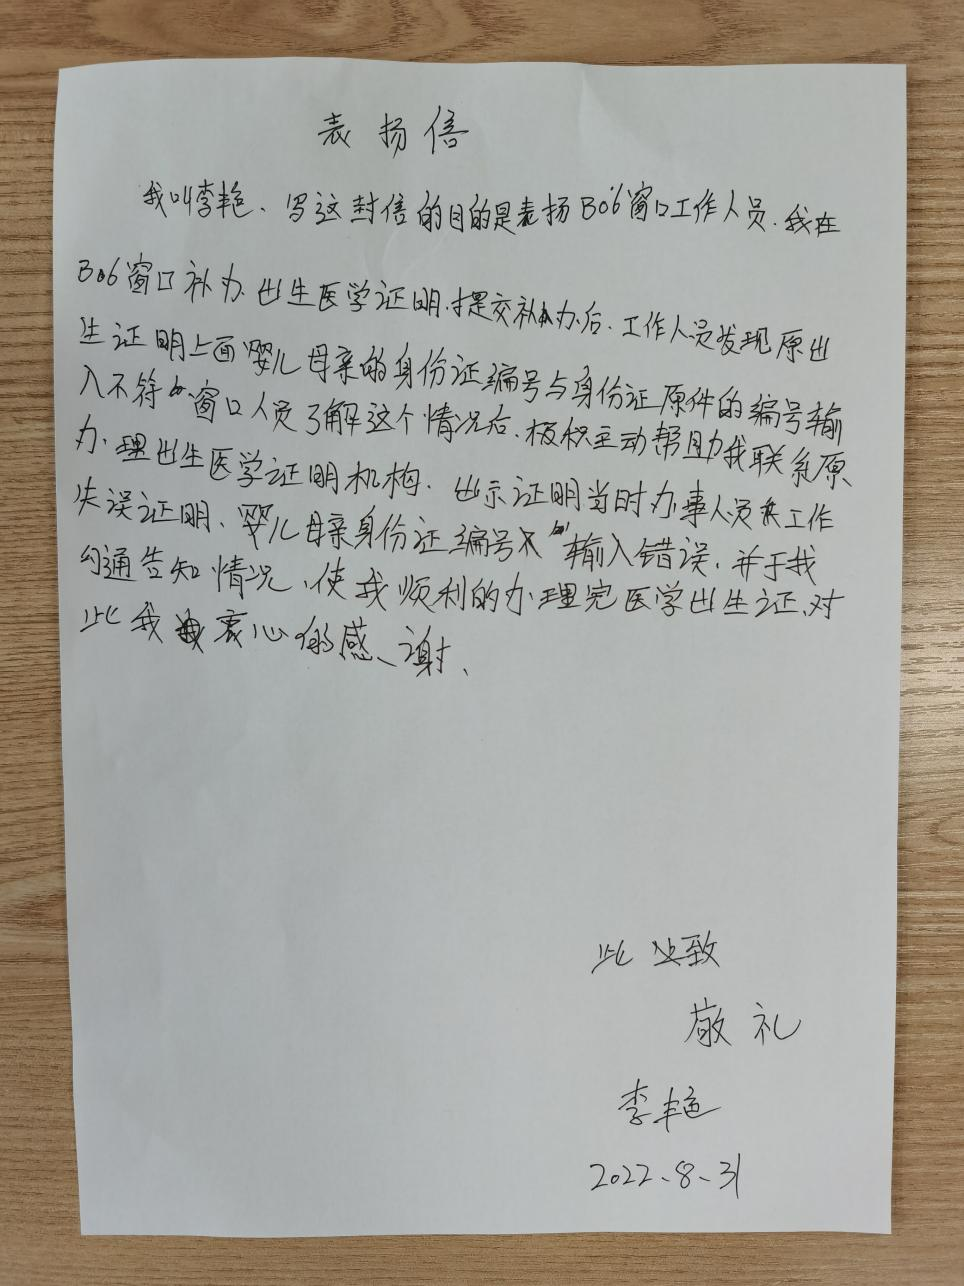 表扬信
我叫李艳、写这封信的目的是表扬B06窗口工作人员.我在
B06窗口补办出生医学证明.提交补办后.工作人员发现原出
生证明上面婴儿母亲的身份证编号与身份证原件的编号输
入不符 窗口人员了解这个情况后、极积主动帮助我联系原
办理出生医学证明机构.出示证明当时办事人员工作
失误证明、婴儿母亲身份证编号输入错误.并于我
勾通告知情况、使我顺利的办理完医学出生证、对
此我衷心的感谢、
此致
敬礼
李艳
2022、8、31